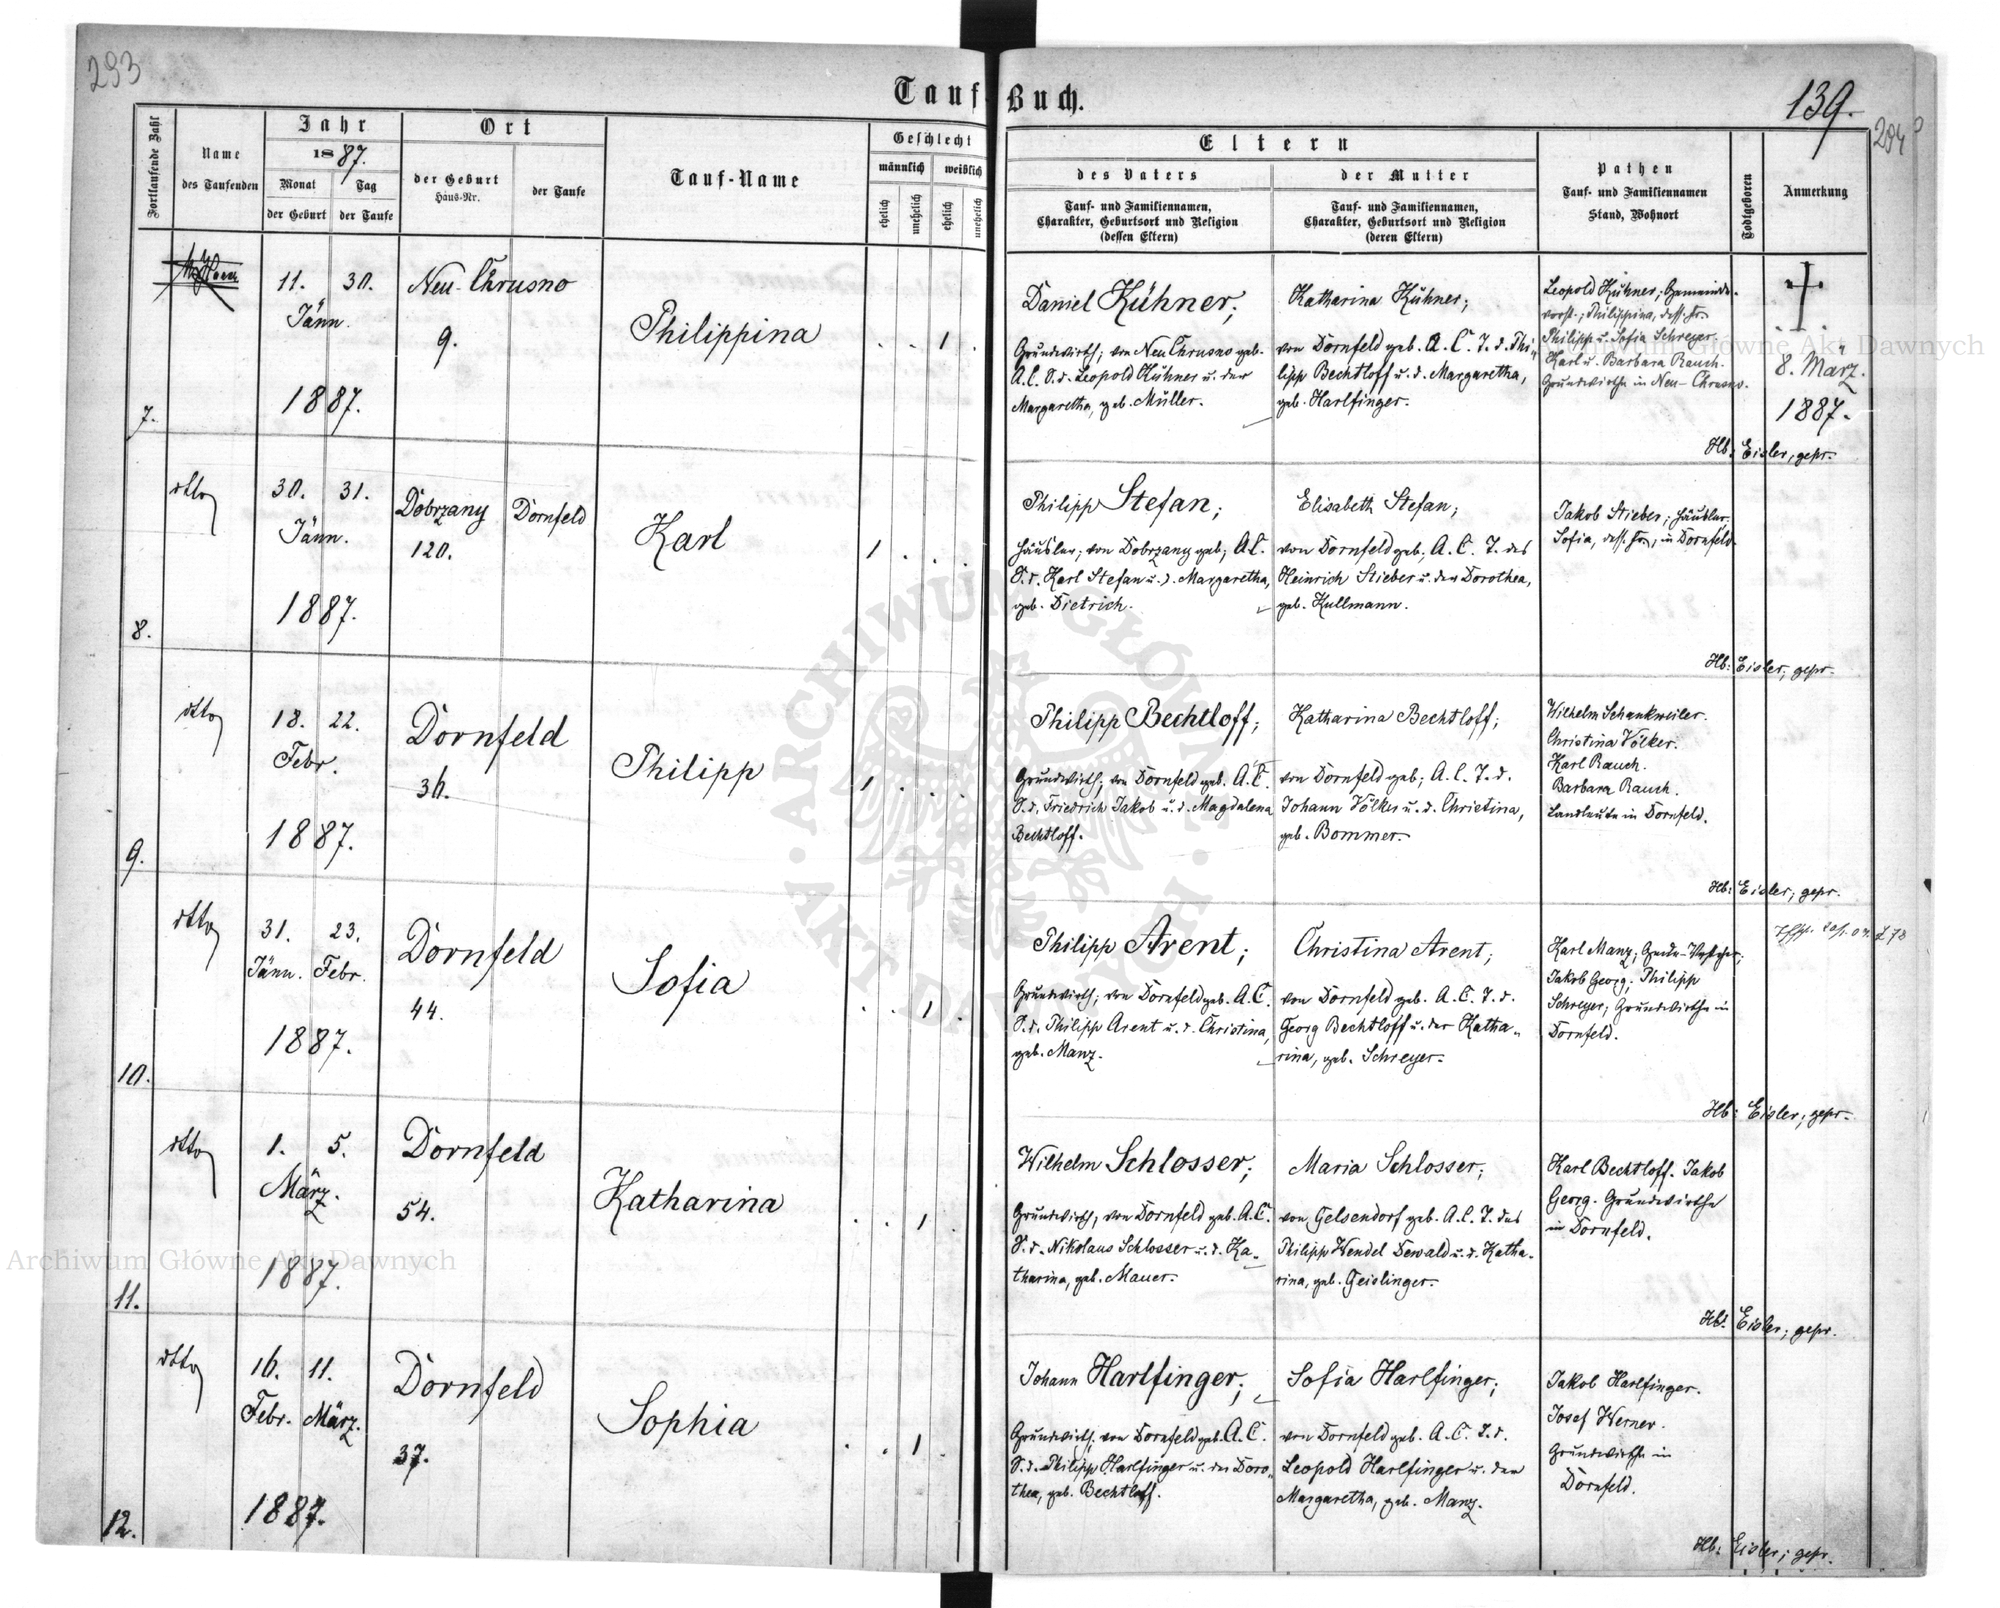 293
Tauf-Buch.
139.
284
Fortlaufende Zahl
Name
des Taufenden
Jahr
1887.
Monat
Tag
der Geburt
der Taufe
Ort
der Geburt
Haus-Nr.
der Taufe
Tauf-Name
Geschlecht
männlich
weiblich
ehelich
unehelich
ehelich
unehelich
Eltern
des Vaters
Tauf- und Familiennamen,
Charakter, Geburtsort und Religion
(dessen Eltern)
der Mutter
Tauf- und Familiennamen,
Charakter, Geburtsort und Religion
(deren Eltern)
Pathen
Tauf- und Familiennamen
Stand, Wohnort
Todtgeboren
Anmerkung
7.
11. 30.
Jänn.
1887.
Neu-Chrusno
9.
Philippina
. . 1 .
Daniel Kühner;
Grundwirth; von Neu Chrusno geb.
A.C. S.d. Leopold Kühner u. der
Margaretha, geb. Müller.
Katharina Kühner;
von Dornfeld geb. A.C. T.d. Phi-
lipp Bechtloff u. d. Margaretha,
geb. Harlfinger.
Leopold Kühner; Gemeinde-
vorst.; Philippina, dess. Fr.
Philipp u. Sofia Schreyer
Karl u. Barbara Rauch.
Grundwirthe in Neu-Chrusno.
8. März.
1887.
Hb: Eisler, gepr.
8.
dtto
30. 31.
Jänn.
1887.
Dobrzany
120.
Dornfeld
Karl
1 . . .
Philipp Stefan;
Häusler; von Dobrzany geb; A.C.
S.d. Karl Stefan u. d. Margaretha,
geb. Dietrich.
Elisabeth Stefan;
von Dornfeld geb; A.C. T. des
Heinrich Stieber u. der Dorothea,
geb. Kullmann.
Jakob Stieber; Häusler.
Sofia, dess. Fr., in Dornfeld.
Hb: Eisler, gepr.
9.
dtto
18. 22.
Febr.
1887.
Dornfeld
36.
Philipp
1 . . .
Philipp Bechtloff;
Grundwirth; von Dornfeld geb. A.C.
S.d. Friedrich Jakob u. d. Magdalena
Bechtloff.
Katharina Bechtloff;
von Dornfeld geb; A.C. T.d.
Johann Völker u. d. Christina,
geb. Bommer.
Wilhelm Schankweiler.
Christina Völker.
Karl Rauch.
Barbara Rauch.
Landleute in Dornfeld.
Hb: Eisler; gepr.
10.
dtto
31. 23.
Jänn. Febr.
1887.
Dornfeld
44.
Sofia
. . 1 .
Philipp Arent;
Grundwirth; von Dornfeld geb. A.C.
S.d. Philipp Arent u. d. Christina,
geb. Manz.
Christina Arent;
von Dornfeld geb. A.C. T.d.
Georg Bechtloff u. der Katha-
rina, geb. Schreyer.
Karl Manz;
Jakob Georg; Philipp
Schreyer; Grundwirthe in
Dornfeld.
Hb: Eisler; gepr.
11.
dtto
1. 5.
März.
1887.
Dornfeld
54.
Katharina
. . 1 .
Wilhelm Schlosser;
Grundwirth, von Dornfeld geb. A.C.
S.d. Nikolaus Schlosser u. d. Ka-
tharina, geb. Mauer.
Maria Schlosser;
von Gelsendorf geb. A.C. T. des
Philipp Wendel Dewald u. d. Katha-
rina, geb. Geislinger.
Karl Bechtloff. Jakob
Georg. Grundwirthe
in Dornfeld.
Hb: Eisler; gepr.
12.
dtto
16. 11.
Febr. März.
1887.
Dornfeld
37.
Sophia
. . 1 .
Johann Harlfinger;
Grundwirth; von Dornfeld geb. A.C.
S.d. Philipp Harlfinger u. der Doro-
thea, geb. Bechtloff.
Sofia Harlfinger;
von Dornfeld geb. A.C. T.d.
Leopold Harlfinger u. der
Margaretha, geb. Manz.
Jakob Harlfinger.
Josef Werner.
Grundwirthe in
Dornfeld.
Hb: Eisler; gepr.
Archiwum Główne Akt Dawnych
Archiwum Główne Akt Dawnych
ARCHIWUM GŁÓWNE AKT DAWNYCH